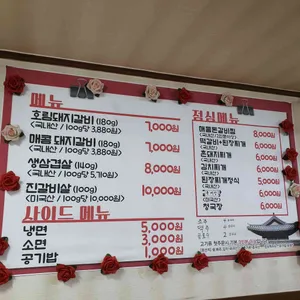 메뉴
호림돼지갈비 (180g) 7,000원
<국내산 / 100g당 3,880원>
매콤 돼지갈비 (180g) 7,000원
<국내산 / 100g당 3,880원>
생삼겹살 (140g) 8,000원
<국내산 / 100g당 5,710원>
진갈비살 (100g) 10,000원
<미국산 / 100g당 10,000원>
사이드 메뉴
냉면 5,000원
소면 3,000원
공기밥 1,000원
점심메뉴
매콤돈갈비찜 8,000원
떡갈비+된장찌개 6,000원
<국내산>
동태찌개 6,000원
김치찌개 6,000원
<국내산>
된장찌개정식 5,500원
6,000원
청국장 6,000원
소주
맥주
음료수